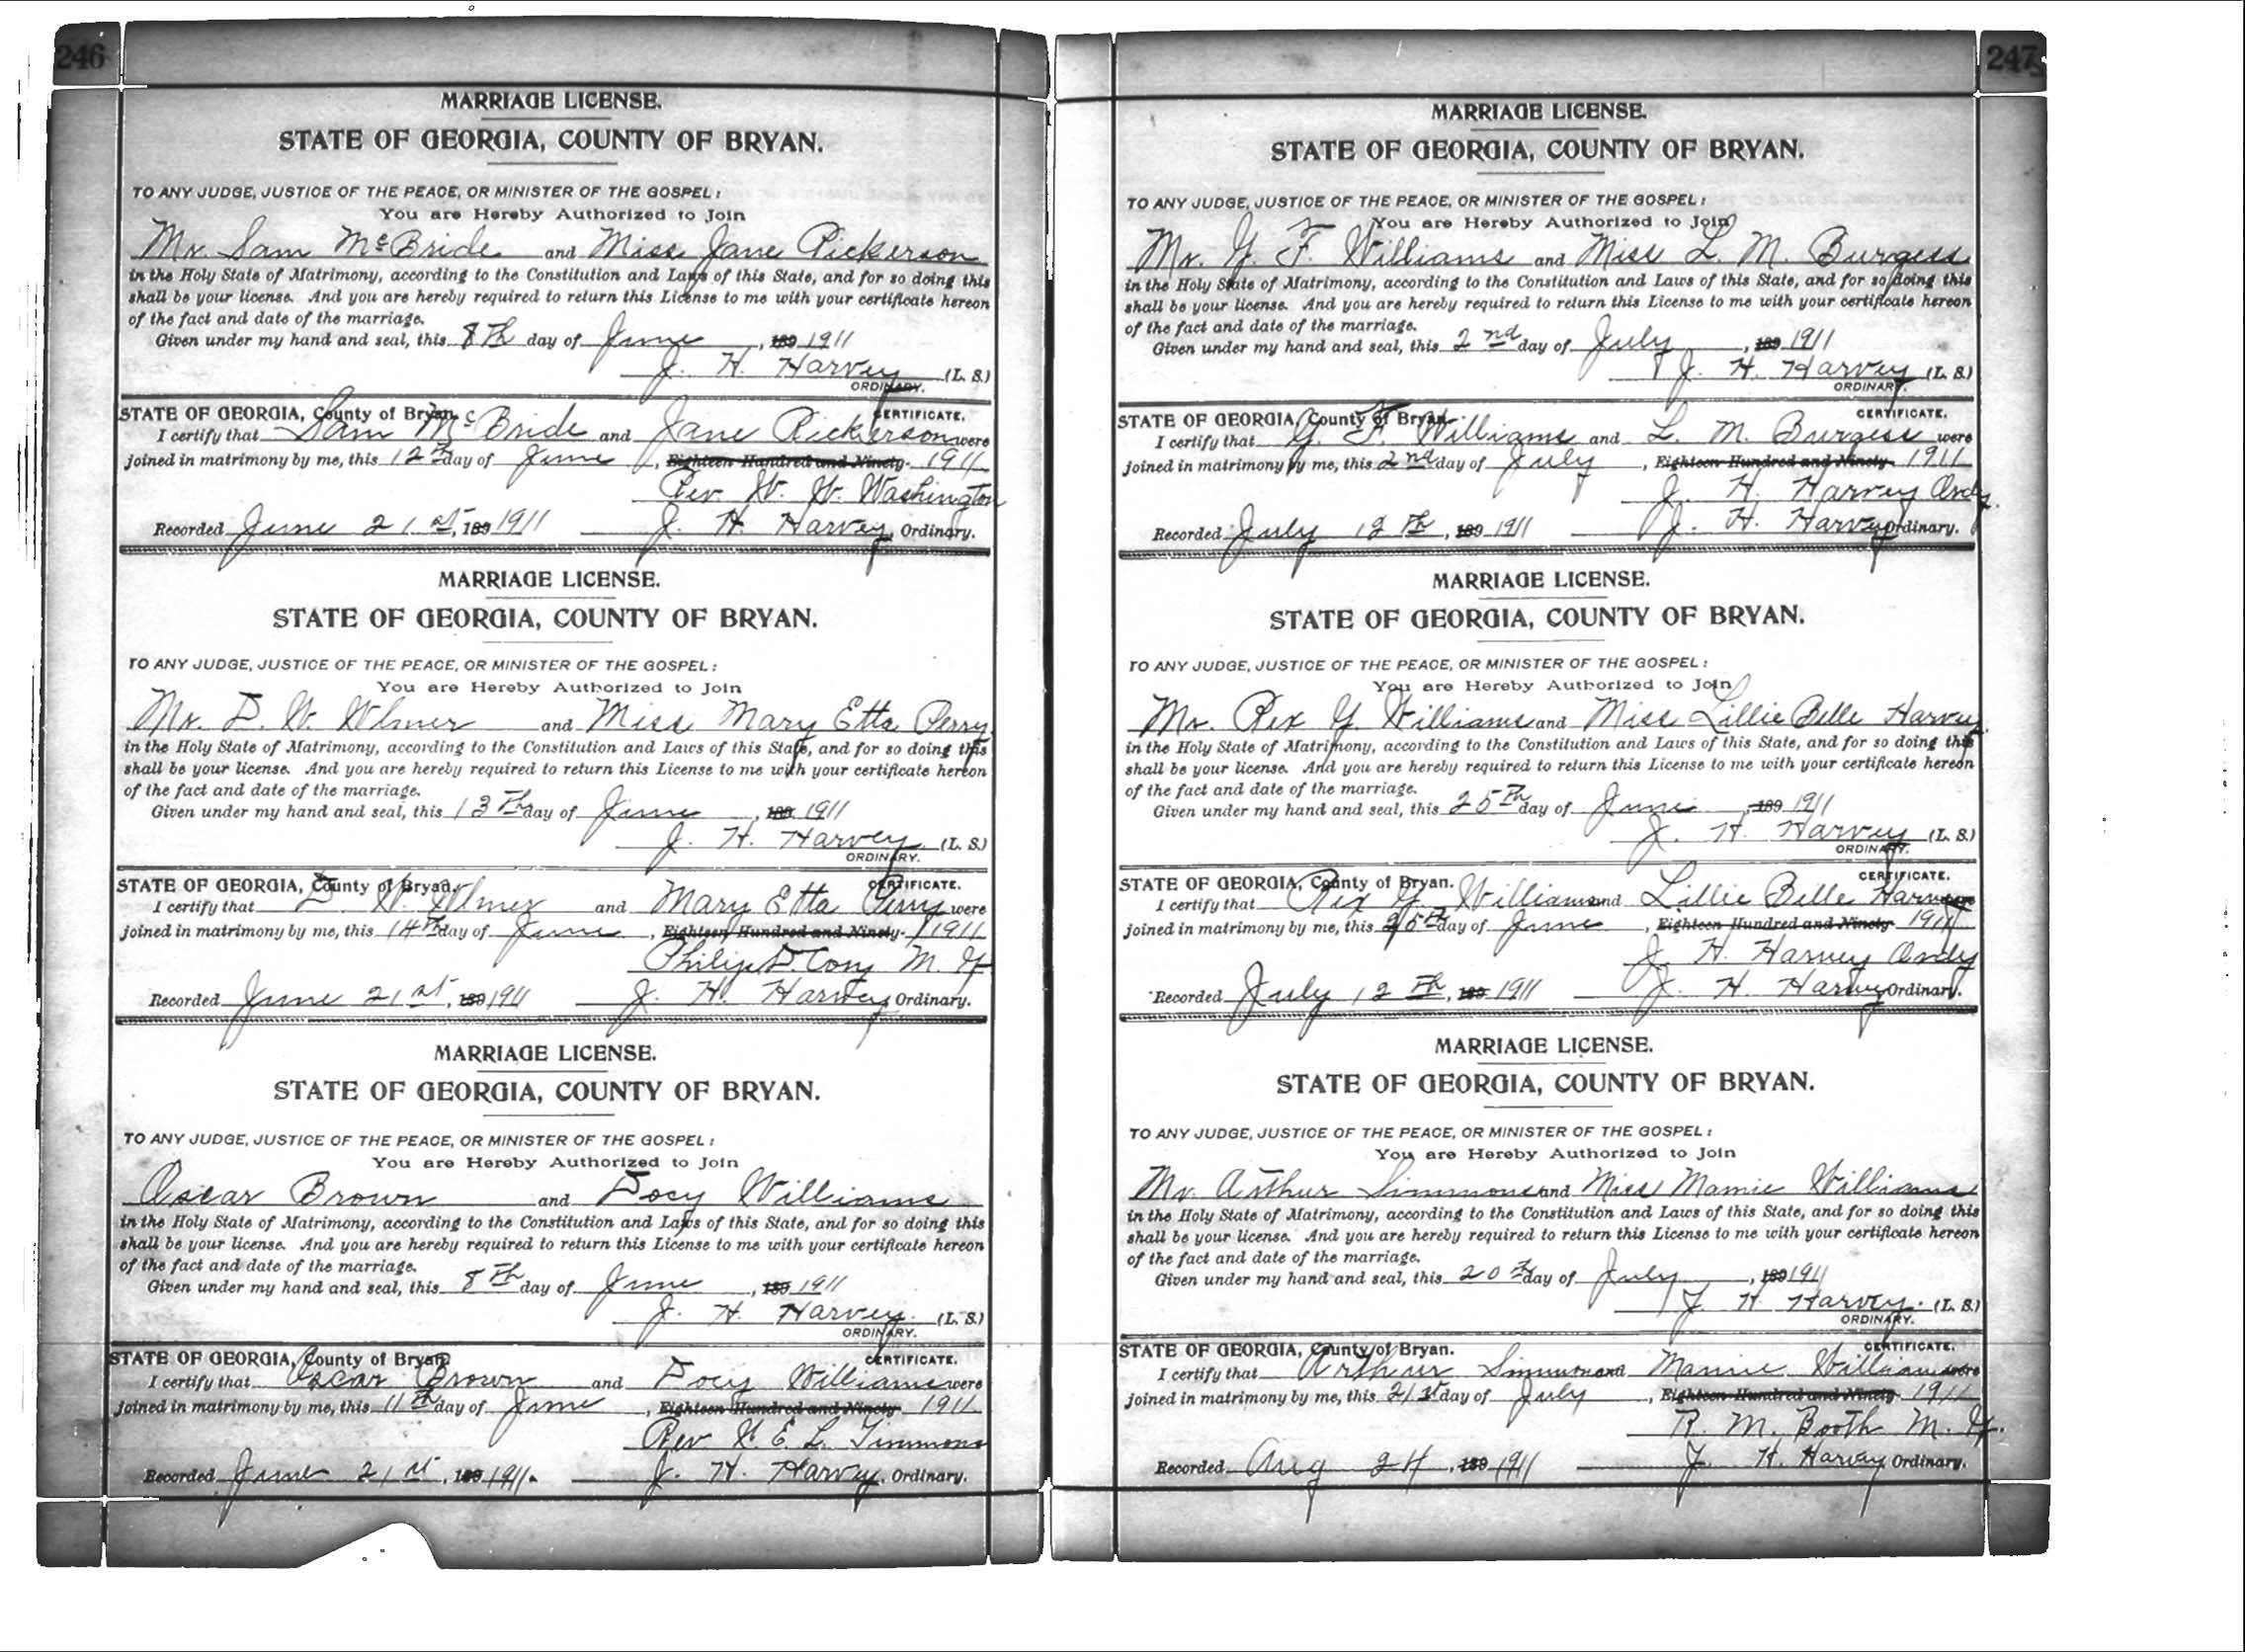 246
MARRIAGE LICENSE.
STATE OF GEORGIA, COUNTY OF BRYAN.
TO ANY JUDGE, JUSTICE OF THE PEACE, OR MINISTER OF THE GOSPEL:
You are Hereby Authorized to Join
Mr. Sam McBride and Miss Jane Rickerson
in the Holy State of Matrimony, according to the Constitution and Laws of this State, and for so doing this
shall be your license. And you are hereby required to return this License to me with your certificate hereon
of the fact and date of the marriage.
Given under my hand and seal, this 8th day of June, 189 1911
J. H. Harvey (L. S.)
ORDINARY.
STATE OF GEORGIA, County of Bryan. CERTIFICATE.
I certify that Sam McBride and Jane Rickerson were
joined in matrimony by me, this 12th day of June, Eighteen Hundred and Ninety- 1911
Rev W. W. Washington
Recorded June 21st, 189 1911 J. H. Harvey, Ordinary.
MARRIAGE LICENSE.
STATE OF GEORGIA, COUNTY OF BRYAN.
TO ANY JUDGE, JUSTICE OF THE PEACE, OR MINISTER OF THE GOSPEL:
You are Hereby Authorized to Join
Mr. D. W. Ulmer and Miss Mary Etta Perry
in the Holy State of Matrimony, according to the Constitution and Laws of this State, and for so doing this
shall be your license. And you are hereby required to return this License to me with your certificate hereon
of the fact and date of the marriage.
Given under my hand and seal, this 13th day of June, 189 1911
J. H. Harvey (L. S.)
ORDINARY.
STATE OF GEORGIA, County of Bryan. CERTIFICATE.
I certify that D. W. Ulmer and Mary Etta Perry were
joined in matrimony by me, this 14th day of June, Eighteen Hundred and Ninety- 1911
Philip D. Cory M. G.
Recorded June 21st, 189 1911 J. H. Harvey Ordinary.
MARRIAGE LICENSE.
STATE OF GEORGIA, COUNTY OF BRYAN.
TO ANY JUDGE, JUSTICE OF THE PEACE, OR MINISTER OF THE GOSPEL:
You are Hereby Authorized to Join
Oscar Brown and Docy Williams
in the Holy State of Matrimony, according to the Constitution and Laws of this State, and for so doing this
shall be your license. And you are hereby required to return this License to me with your certificate hereon
of the fact and date of the marriage.
Given under my hand and seal, this 8th day of June, 189 1911
J. H. Harvey. (L. S.)
ORDINARY.
STATE OF GEORGIA, County of Bryan. CERTIFICATE.
I certify that Oscar Brown and Docy Williams were
joined in matrimony by me, this 11th day of June, Eighteen Hundred and Ninety- 1911
Rev W. E. L. Timmons
Recorded June 21st, 189 1911. J. H. Harvey, Ordinary.
247
MARRIAGE LICENSE.
STATE OF GEORGIA, COUNTY OF BRYAN.
TO ANY JUDGE, JUSTICE OF THE PEACE, OR MINISTER OF THE GOSPEL:
You are Hereby Authorized to Join
Mr. G. F. Williams and Miss L. M. Burgess
in the Holy State of Matrimony, according to the Constitution and Laws of this State, and for so doing this
shall be your license. And you are hereby required to return this License to me with your certificate hereon
of the fact and date of the marriage.
Given under my hand and seal, this 2nd day of July, 189 1911
J. H. Harvey (L. S.)
ORDINARY.
STATE OF GEORGIA, County of Bryan. CERTIFICATE.
I certify that G. F. Williams and L. M. Burgess were
joined in matrimony by me, this 2nd day of July, Eighteen Hundred and Ninety- 1911
J. H. Harvey Ordy.
Recorded July 12th, 189 1911 J. H. Harvey Ordinary.
MARRIAGE LICENSE.
STATE OF GEORGIA, COUNTY OF BRYAN.
TO ANY JUDGE, JUSTICE OF THE PEACE, OR MINISTER OF THE GOSPEL:
You are Hereby Authorized to Join
Mr. Rex G. Williams and Miss Lillie Belle Harvey
in the Holy State of Matrimony, according to the Constitution and Laws of this State, and for so doing this
shall be your license. And you are hereby required to return this License to me with your certificate hereon
of the fact and date of the marriage.
Given under my hand and seal, this 25th day of June, 189 1911
J. H. Harvey (L. S.)
ORDINARY.
STATE OF GEORGIA, County of Bryan. CERTIFICATE.
I certify that Rex G. Williams and Lillie Belle Harvey were
joined in matrimony by me, this 25th day of June, Eighteen Hundred and Ninety- 1911
J. H. Harvey Ordy
Recorded July 12th, 189 1911 J. H. Harvey Ordinary.
MARRIAGE LICENSE.
STATE OF GEORGIA, COUNTY OF BRYAN.
TO ANY JUDGE, JUSTICE OF THE PEACE, OR MINISTER OF THE GOSPEL:
You are Hereby Authorized to Join
Mr. Arthur Simmons and Miss Mamie Williams
in the Holy State of Matrimony, according to the Constitution and Laws of this State, and for so doing this
shall be your license. And you are hereby required to return this License to me with your certificate hereon
of the fact and date of the marriage.
Given under my hand and seal, this 20th day of July, 189 1911
J. H. Harvey. (L. S.)
ORDINARY.
STATE OF GEORGIA, County of Bryan. CERTIFICATE.
I certify that Arthur Simmons and Mamie Williams were
joined in matrimony by me, this 21st day of July, Eighteen Hundred and Ninety- 1911
R. M. Booth M. G.
Recorded Aug 24, 189 1911 J. H. Harvey Ordinary.